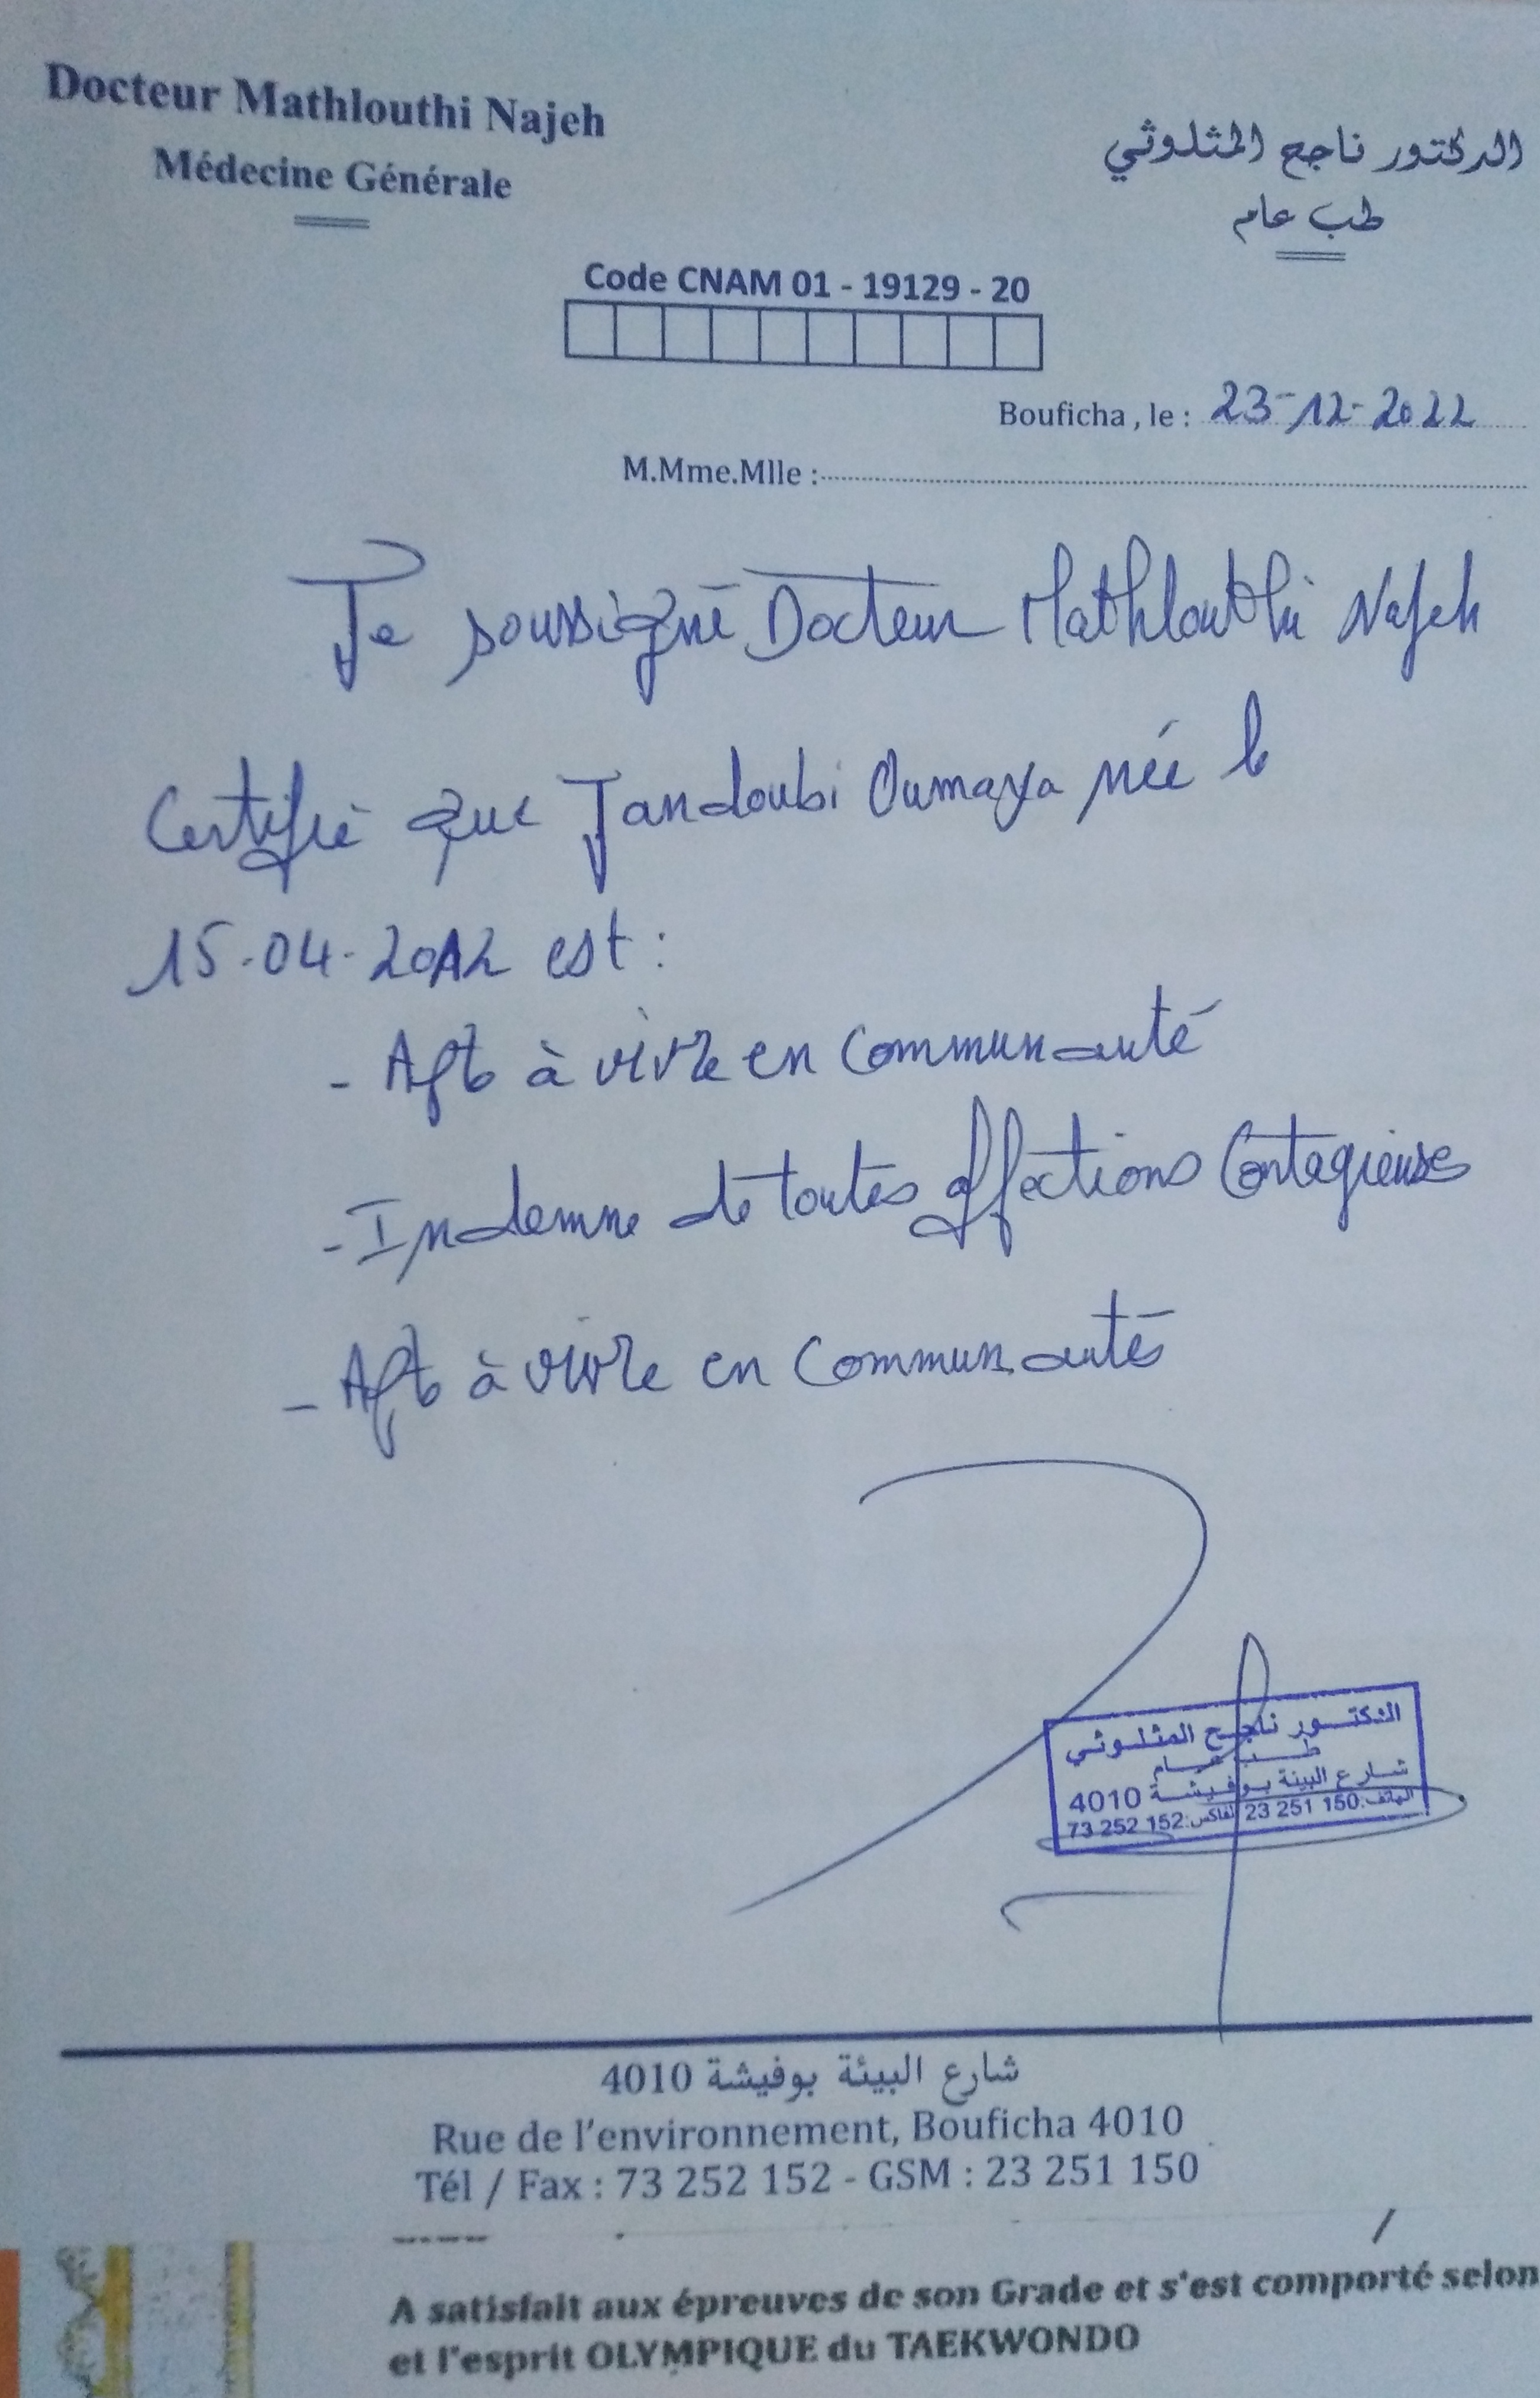 Docteur Mathlouthi Najeh
Médecine Générale
الدكتور ناجح المثلوثي
طب عام
Code CNAM 01 - 19129 - 20
Bouficha , le : 23-12-2022
M.Mme.Mlle :
Je soussigné Docteur Mathlouthi Najeh
Certifie que Jandoubi Oumaya née le
15-04-2012 est :
- Apte à vivre en Communauté
- Indemne de toutes affections Contagieuses
- Apte à vivre en Communauté
الدكتور ناجح المثلوثي
طب عام
شارع البيئة بوفيشة 4010
الهاتف:150 251 23 الفاكس:152 252 73
شارع البيئة بوفيشة 4010
Rue de l'environnement, Bouficha 4010
Tél / Fax : 73 252 152 - GSM : 23 251 150
A satisfait aux épreuves de son Grade et s'est comporté selon
et l'esprit OLYMPIQUE du TAEKWONDO